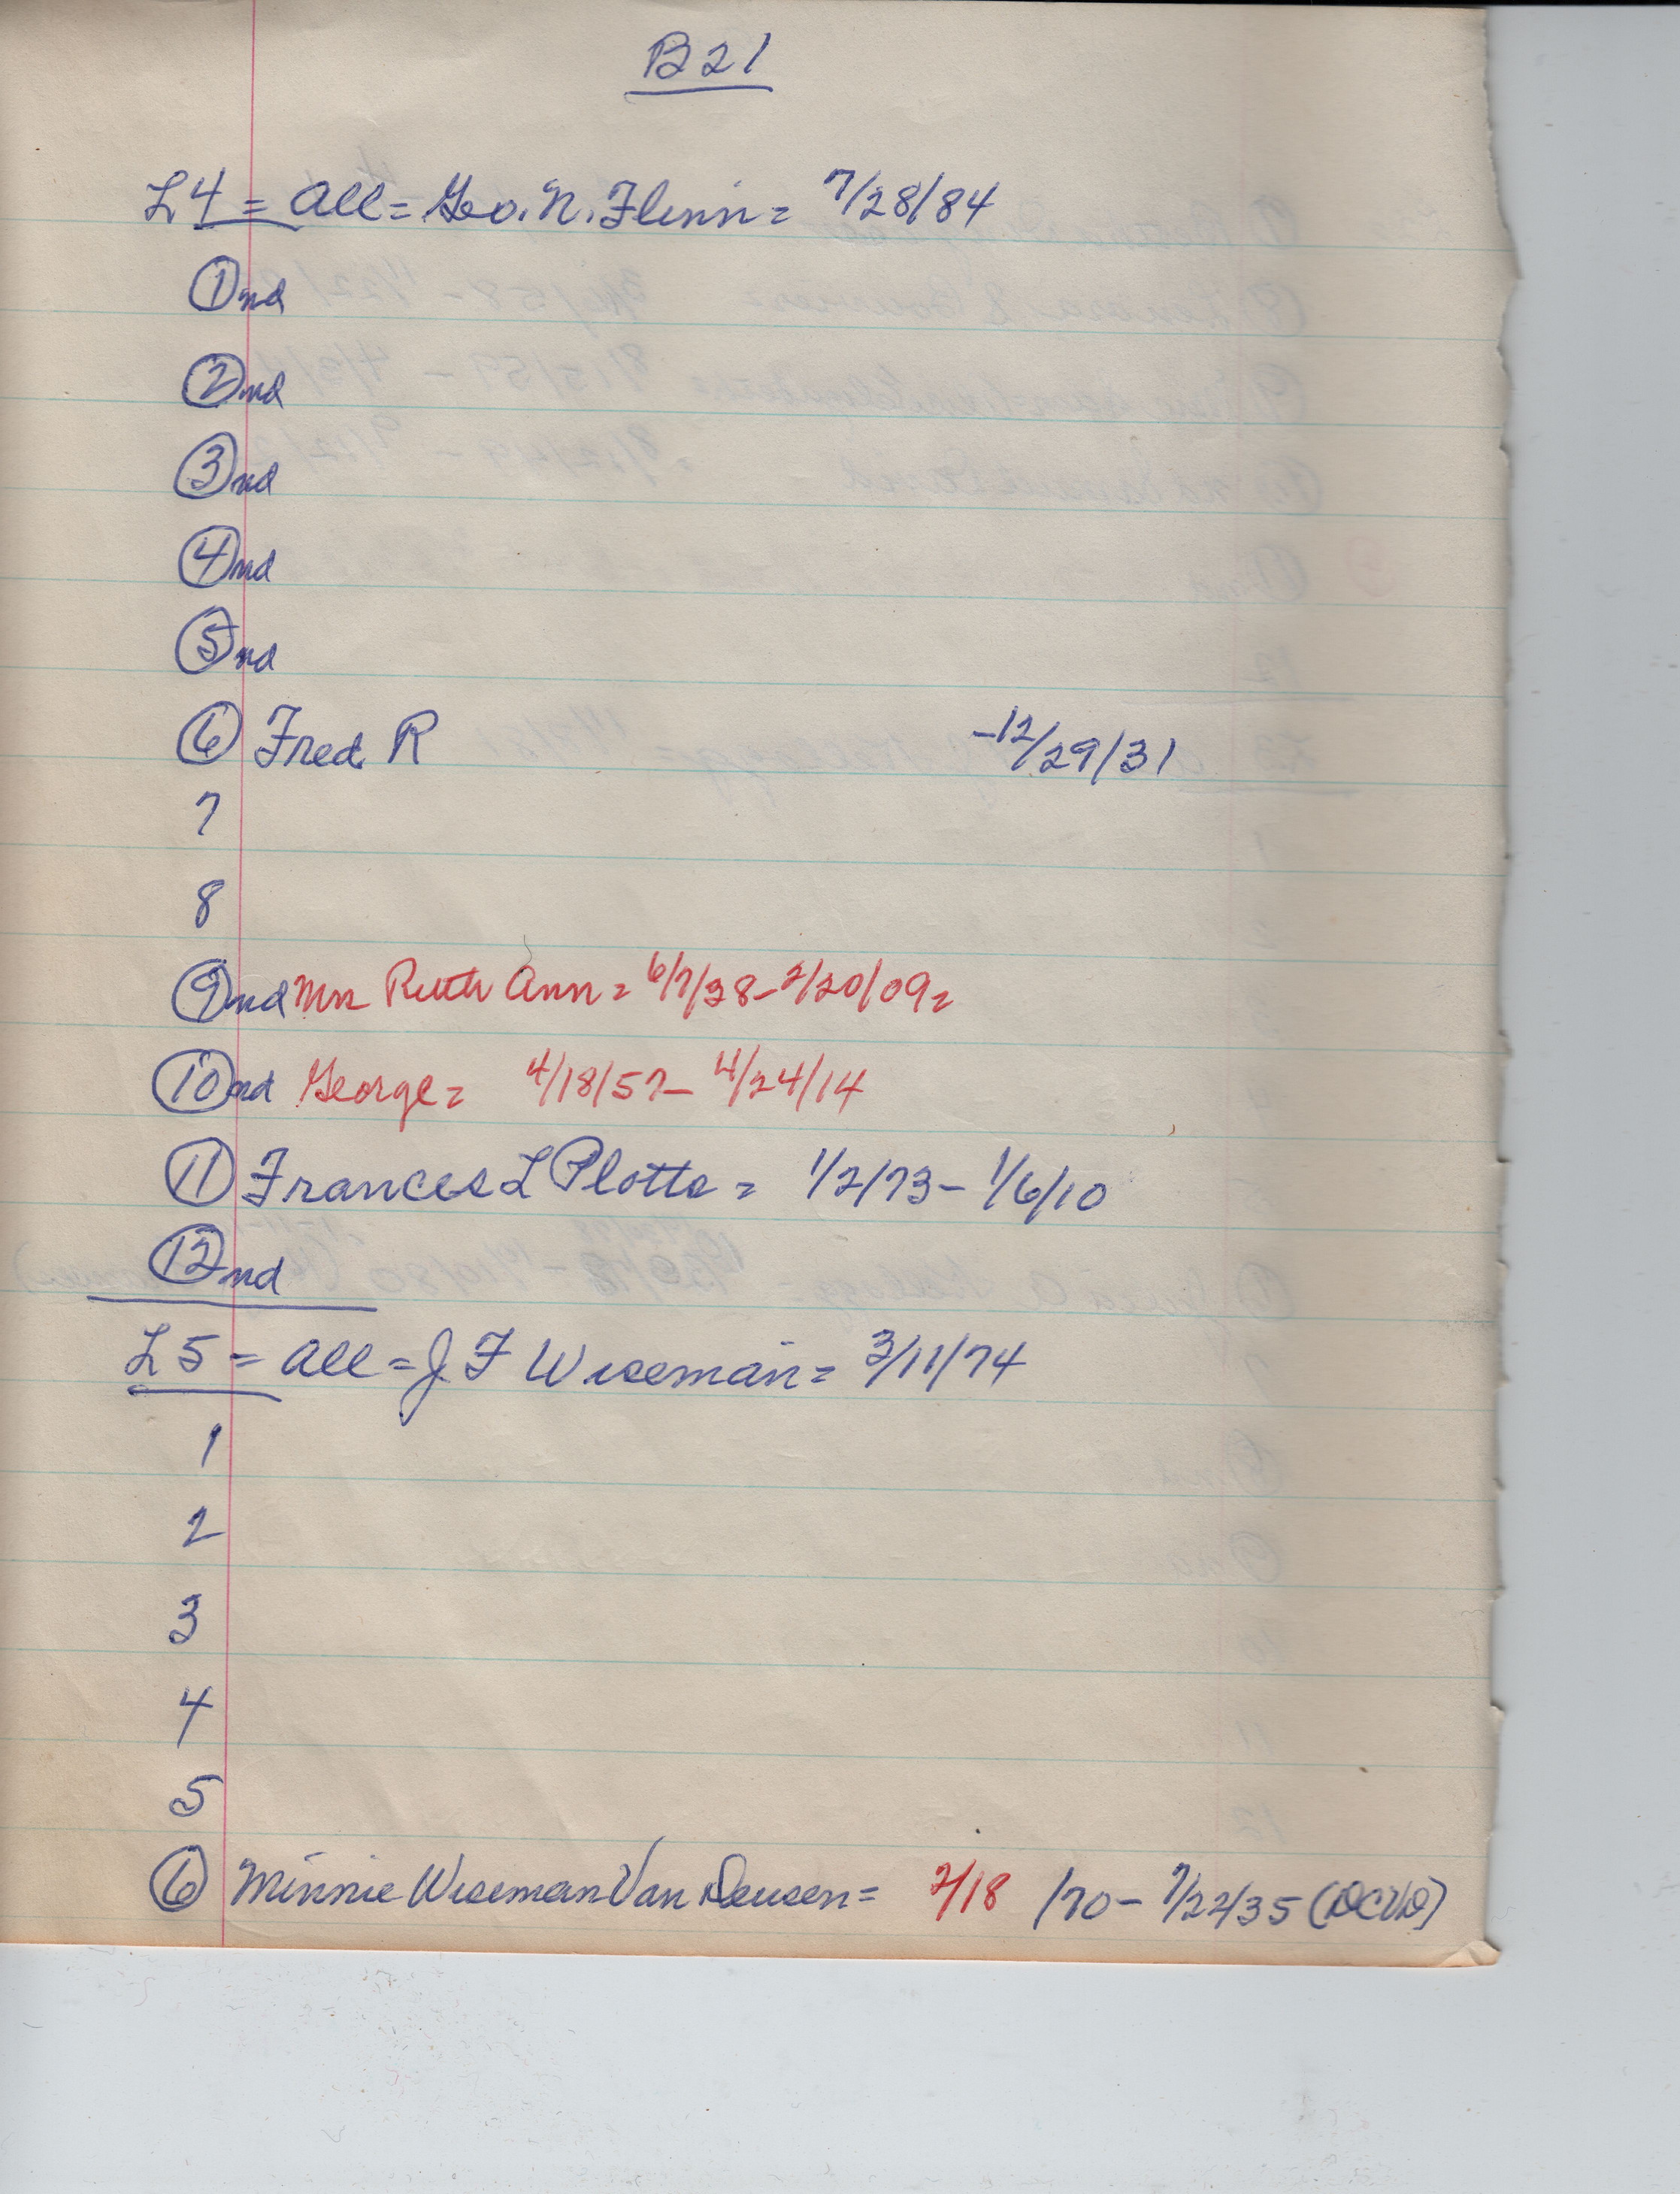 B21
L4 = all = Geo. N. Flinn = 7/28/84
1 nd
2 nd
3 nd
4 nd
5 nd
6 Fred R -12/29/31
7
8
9 nd Mrs Ruth Ann = 6/7/38-2/20/09=
10 nd George = 4/18/57- 4/24/14
11 Frances L Plotts = 1/2/73- 1/6/10
12 nd
L5 = all = J F Wiseman = 3/11/74
1
2
3
4
5
6 Minnie Wiseman Van Deusen = 2/18 /70- 7/22/35 (DCVD)